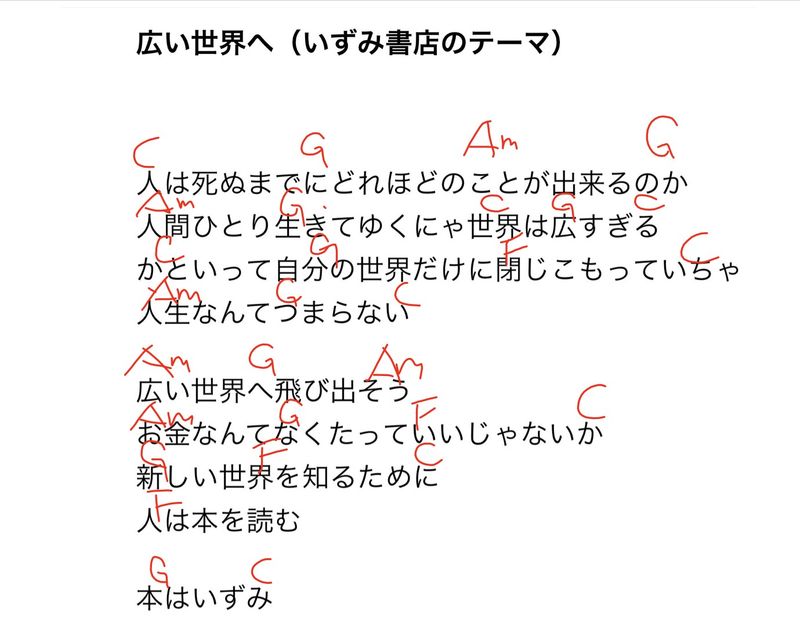 広い世界へ（いずみ書店のテーマ）
C G Am G
人は死ぬまでにどれほどのことが出来るのか
Am G C G C
人間ひとり生きてゆくにゃ世界は広すぎる
C G F C
かといって自分の世界だけに閉じこもっていちゃ
Am G C
人生なんてつまらない
Am G Am
広い世界へ飛び出そう
Am G F C
お金なんてなくたっていいじゃないか
G F C
新しい世界を知るために
F
人は本を読む
G C
本はいずみ